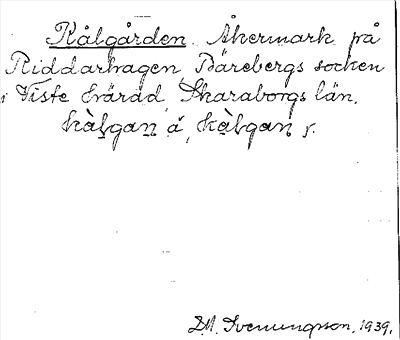 Kålgården. Åkermark på
Riddarhagen, Bärebergs socken
i Viste härad, Skaraborgs län.
kàlgan å, kàlgan r.
D.M. Svenungsson. 1939.